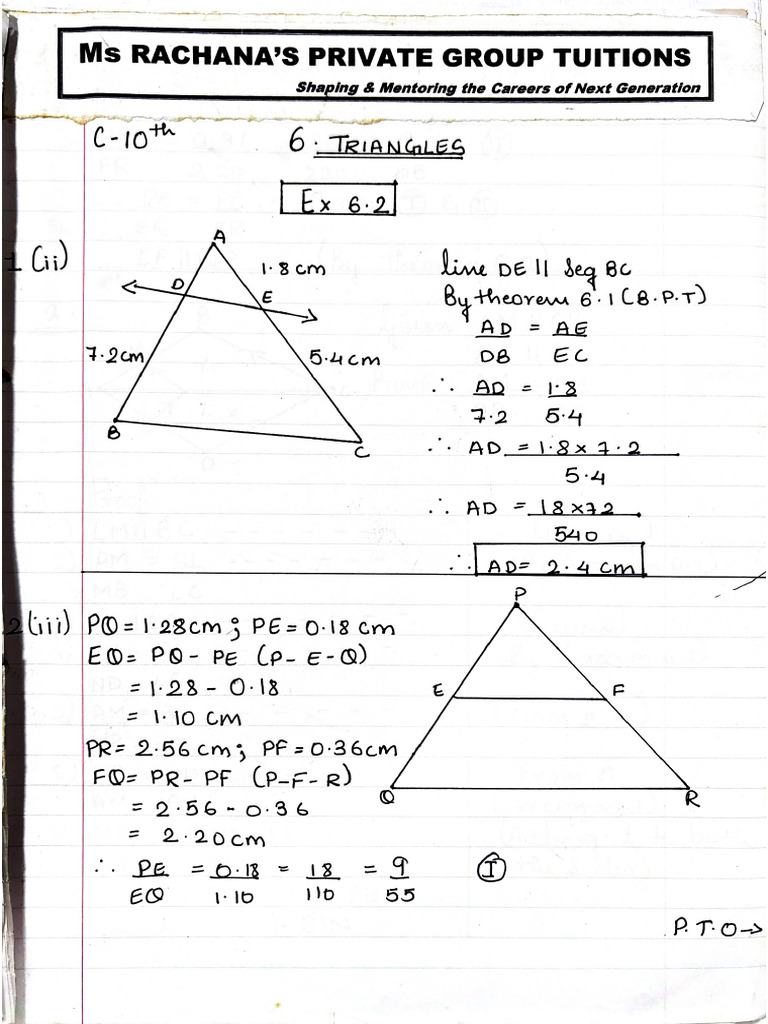 Ms RACHANA'S PRIVATE GROUP TUITIONS
Shaping & Mentoring the Careers of Next Generation
C-10th
6. TRIANGLES
Ex 6.2
1 (ii)
A
1.8 cm
D
E
7.2cm
5.4cm
B
C
line DE || Seg BC
By theorem 6.1 (B.P.T)
AD = AE
DB EC
∴ AD = 1.8
7.2 5.4
∴ AD = 1.8 x 7.2
5.4
∴ AD = 18 x 72
540
∴ AD = 2.4 cm
2 (iii) PQ = 1.28cm ; PE = 0.18 cm
EQ = PQ - PE (P-E-Q)
= 1.28 - 0.18
= 1.10 cm
PR = 2.56 cm; PF = 0.36cm
FQ = PR - PF (P-F-R)
= 2.56 - 0.36
= 2.20cm
P
E
F
Q
R
∴ PE = 0.18 = 18 = 9 I
EQ 1.10 110 55
P.T.O→